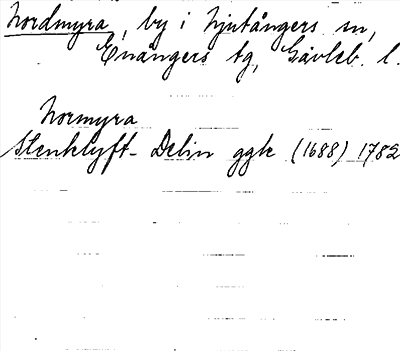 Nordmyra, by i Njutångers sn,
Enångers tg, Gävleb. l.
Normyra
Stenklyft - Delin ggk (1688) 1782